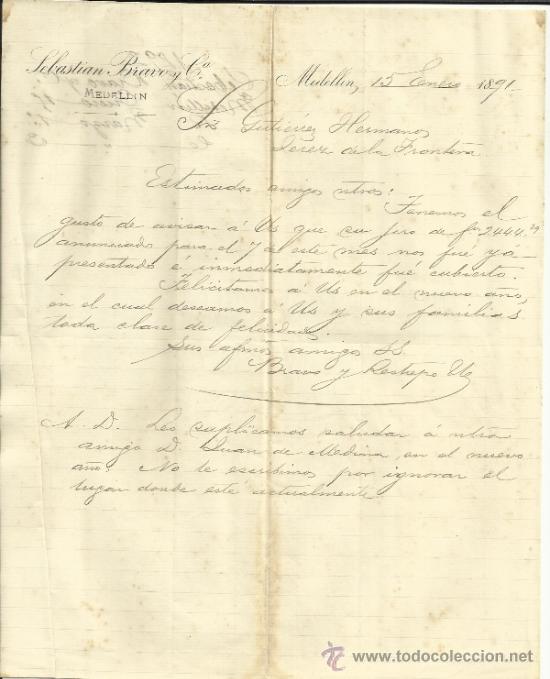 Sebastian Bravo y Cª
MEDELLIN
Medellin, 15 Enero 1891
Sres Gutiérrez Hermanos
Jerez de la Frontera
Estimados amigos ntros:
Tenemos el
gusto de avisar á Us que su giro de $ 2444.
anunciado para el 7 de este mes nos fué ya
presentado é inmediatamente fue cubierto.
Felicitamos á Us en el nuevo año,
en el cual deseamos á Us y sus familias
toda clase de felicidades.
Sus afmos amigos SS.
Bravo y Restrepo
A. D. Les suplicamos saludar á ntro
amigo D. Juan de Medina en el nuevo
año. No le escribimos por ignorar el
lugar donde esté actualmente
www.todocoleccion.net